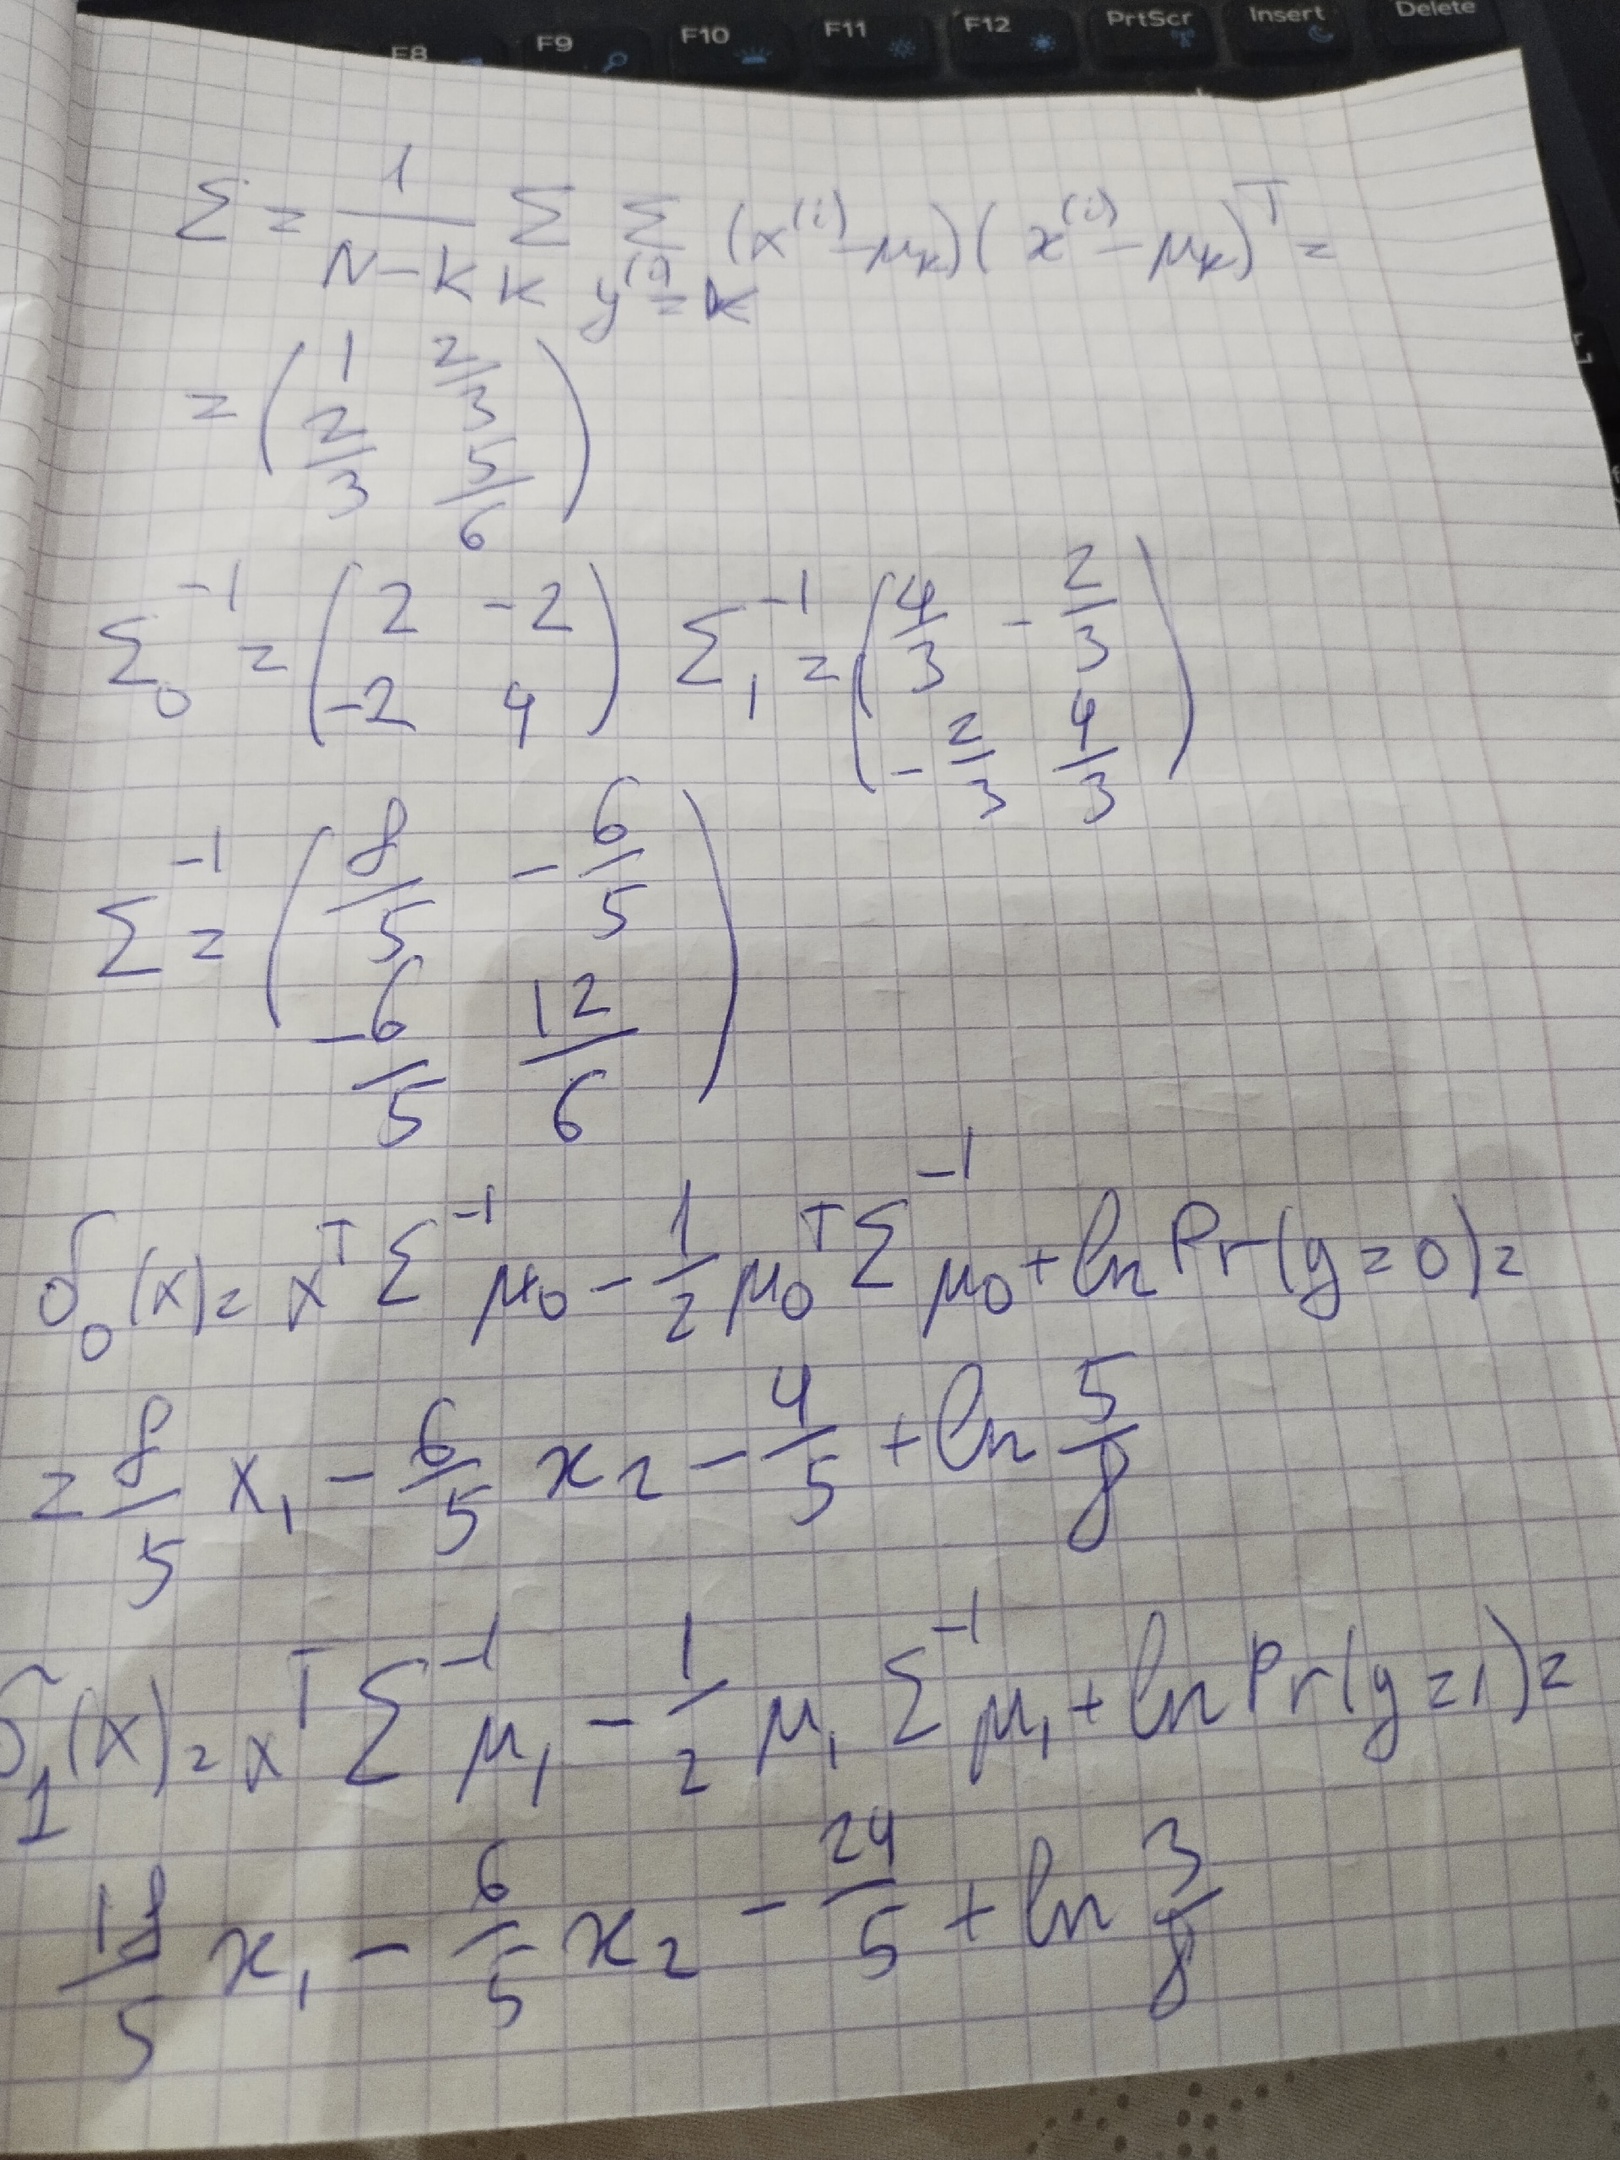 F8 F9 F10 F11 F12 PrtScr Insert Delete
Σ = 1/(N-K) Σ_K Σ_{y^(i)=K} (x^(i) - μ_K)(x^(i) - μ_K)^T =
= (1 2/3; 2/3 5/6)
Σ_0^-1 = (2 -2; -2 4) Σ_1^-1 = (4/3 -2/3; -2/3 4/3)
Σ^-1 = (8/5 -6/5; -6/5 12/6)
δ_0(x) = x^T Σ^-1 μ_0 - 1/2 μ_0^T Σ^-1 μ_0 + ln Pr(y=0) =
= 8/5 x_1 - 6/5 x_2 - 4/5 + ln 5/8
δ_1(x) = x^T Σ^-1 μ_1 - 1/2 μ_1 Σ^-1 μ_1 + ln Pr(y=1) =
18/5 x_1 - 6/5 x_2 - 24/5 + ln 3/8